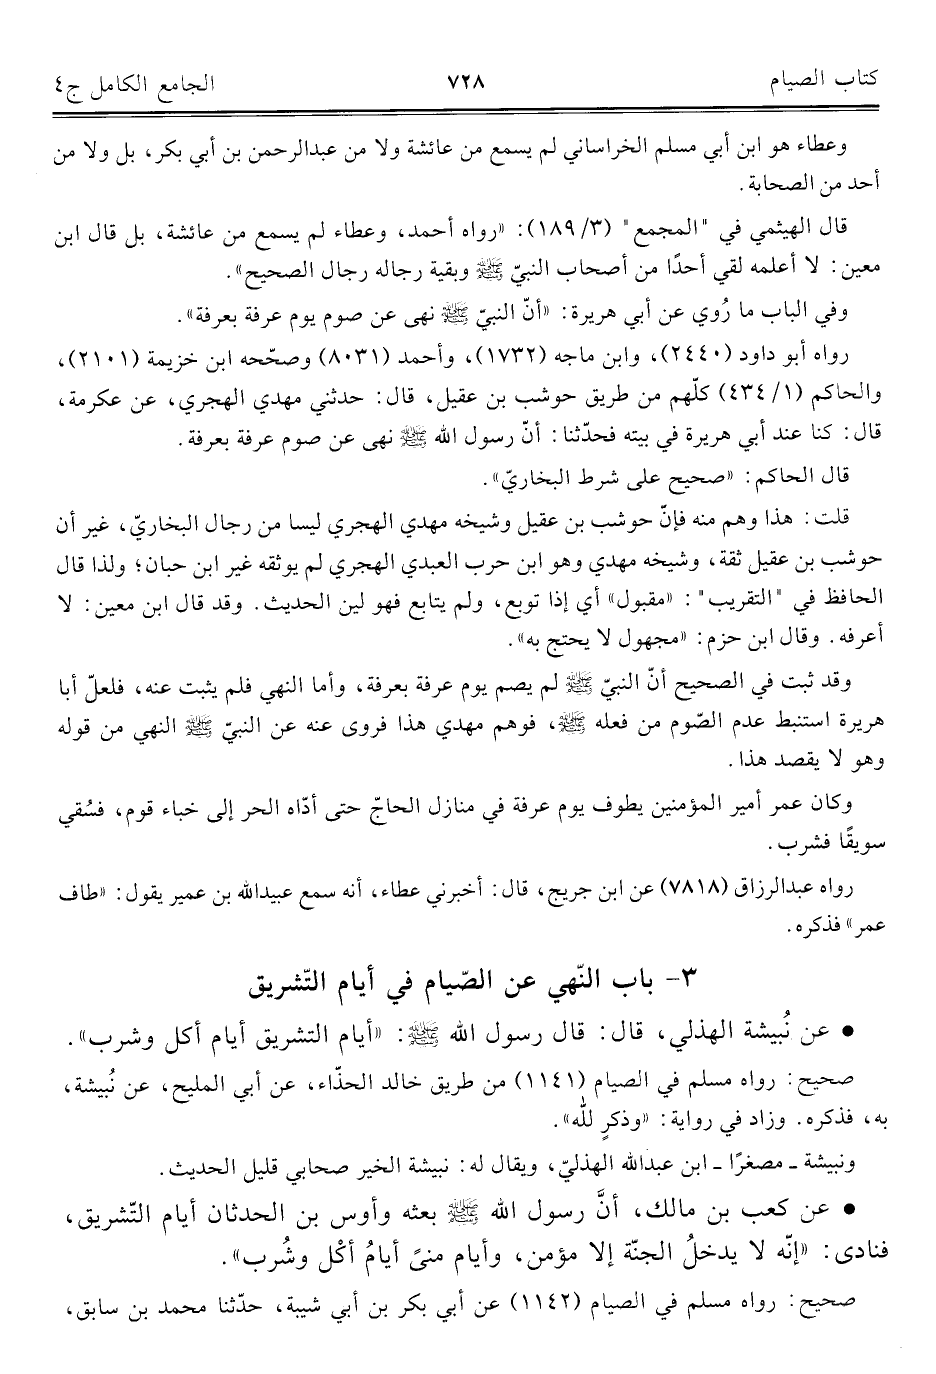 كتاب الصيام ٧٢٨ الجامع الكامل ج٤
وعطاء هو ابن أبي مسلم الخراساني لم يسمع من عائشة ولا من عبدالرحمن بن أبي بكر، بل ولا من
أحد من الصحابة.
قال الهيثمي في "المجمع" (٣/ ١٨٩): «رواه أحمد، وعطاء لم يسمع من عائشة، بل قال ابن
معين: لا أعلمه لقي أحدًا من أصحاب النبيّ ﷺ وبقية رجاله رجال الصحيح».
وفي الباب ما رُوي عن أبي هريرة: «أنّ النبيّ ﷺ نهى عن صوم يوم عرفة بعرفة».
رواه أبو داود (٢٤٤٠)، وابن ماجه (١٧٣٢)، وأحمد (٨٠٣١) وصحّحه ابن خزيمة (٢١٠١)،
والحاكم (١/ ٤٣٤) كلّهم من طريق حوشب بن عقيل، قال: حدثني مهدي الهجري، عن عكرمة،
قال: كنا عند أبي هريرة في بيته فحدّثنا: أنّ رسول الله ﷺ نهى عن صوم عرفة بعرفة.
قال الحاكم: «صحيح على شرط البخاريّ».
قلت: هذا وهم منه فإنّ حوشب بن عقيل وشيخه مهدي الهجري ليسا من رجال البخاريّ، غير أن
حوشب بن عقيل ثقة، وشيخه مهدي وهو ابن حرب العبدي الهجري لم يوثقه غير ابن حبان؛ ولذا قال
الحافظ في "التقريب": «مقبول» أي إذا توبع، ولم يتابع فهو لين الحديث. وقد قال ابن معين: لا
أعرفه. وقال ابن حزم: «مجهول لا يحتج به».
وقد ثبت في الصحيح أنّ النبيّ ﷺ لم يصم يوم عرفة بعرفة، وأما النهي فلم يثبت عنه، فلعلّ أبا
هريرة استنبط عدم الصّوم من فعله ﷺ، فوهم مهدي هذا فروى عنه عن النبيّ ﷺ النهي من قوله
وهو لا يقصد هذا.
وكان عمر أمير المؤمنين يطوف يوم عرفة في منازل الحاجّ حتى أدّاه الحر إلى خباء قوم، فسُقي
سويقًا فشرب.
رواه عبدالرزاق (٧٨١٨) عن ابن جريج، قال: أخبرني عطاء، أنه سمع عبيدالله بن عمير يقول: «طاف
عمر» فذكره.
٣- باب النّهي عن الصّيام في أيام التّشريق
● عن نُبيشة الهذلي، قال: قال رسول الله ﷺ: «أيام التشريق أيام أكل وشرب».
صحيح: رواه مسلم في الصيام (١١٤١) من طريق خالد الحذّاء، عن أبي المليح، عن نُبيشة،
به، فذكره. وزاد في رواية: «وذكرٍ لله».
ونبيشة ـ مصغرًا ـ ابن عبدالله الهذليّ، ويقال له: نبيشة الخير صحابي قليل الحديث.
● عن كعب بن مالك، أنَّ رسول الله ﷺ بعثه وأوس بن الحدثان أيام التّشريق،
فنادى: «إنّه لا يدخلُ الجنّة إلا مؤمن، وأيام منىً أيامُ أكْل وشُرب».
صحيح: رواه مسلم في الصيام (١١٤٢) عن أبي بكر بن أبي شيبة، حدّثنا محمد بن سابق،